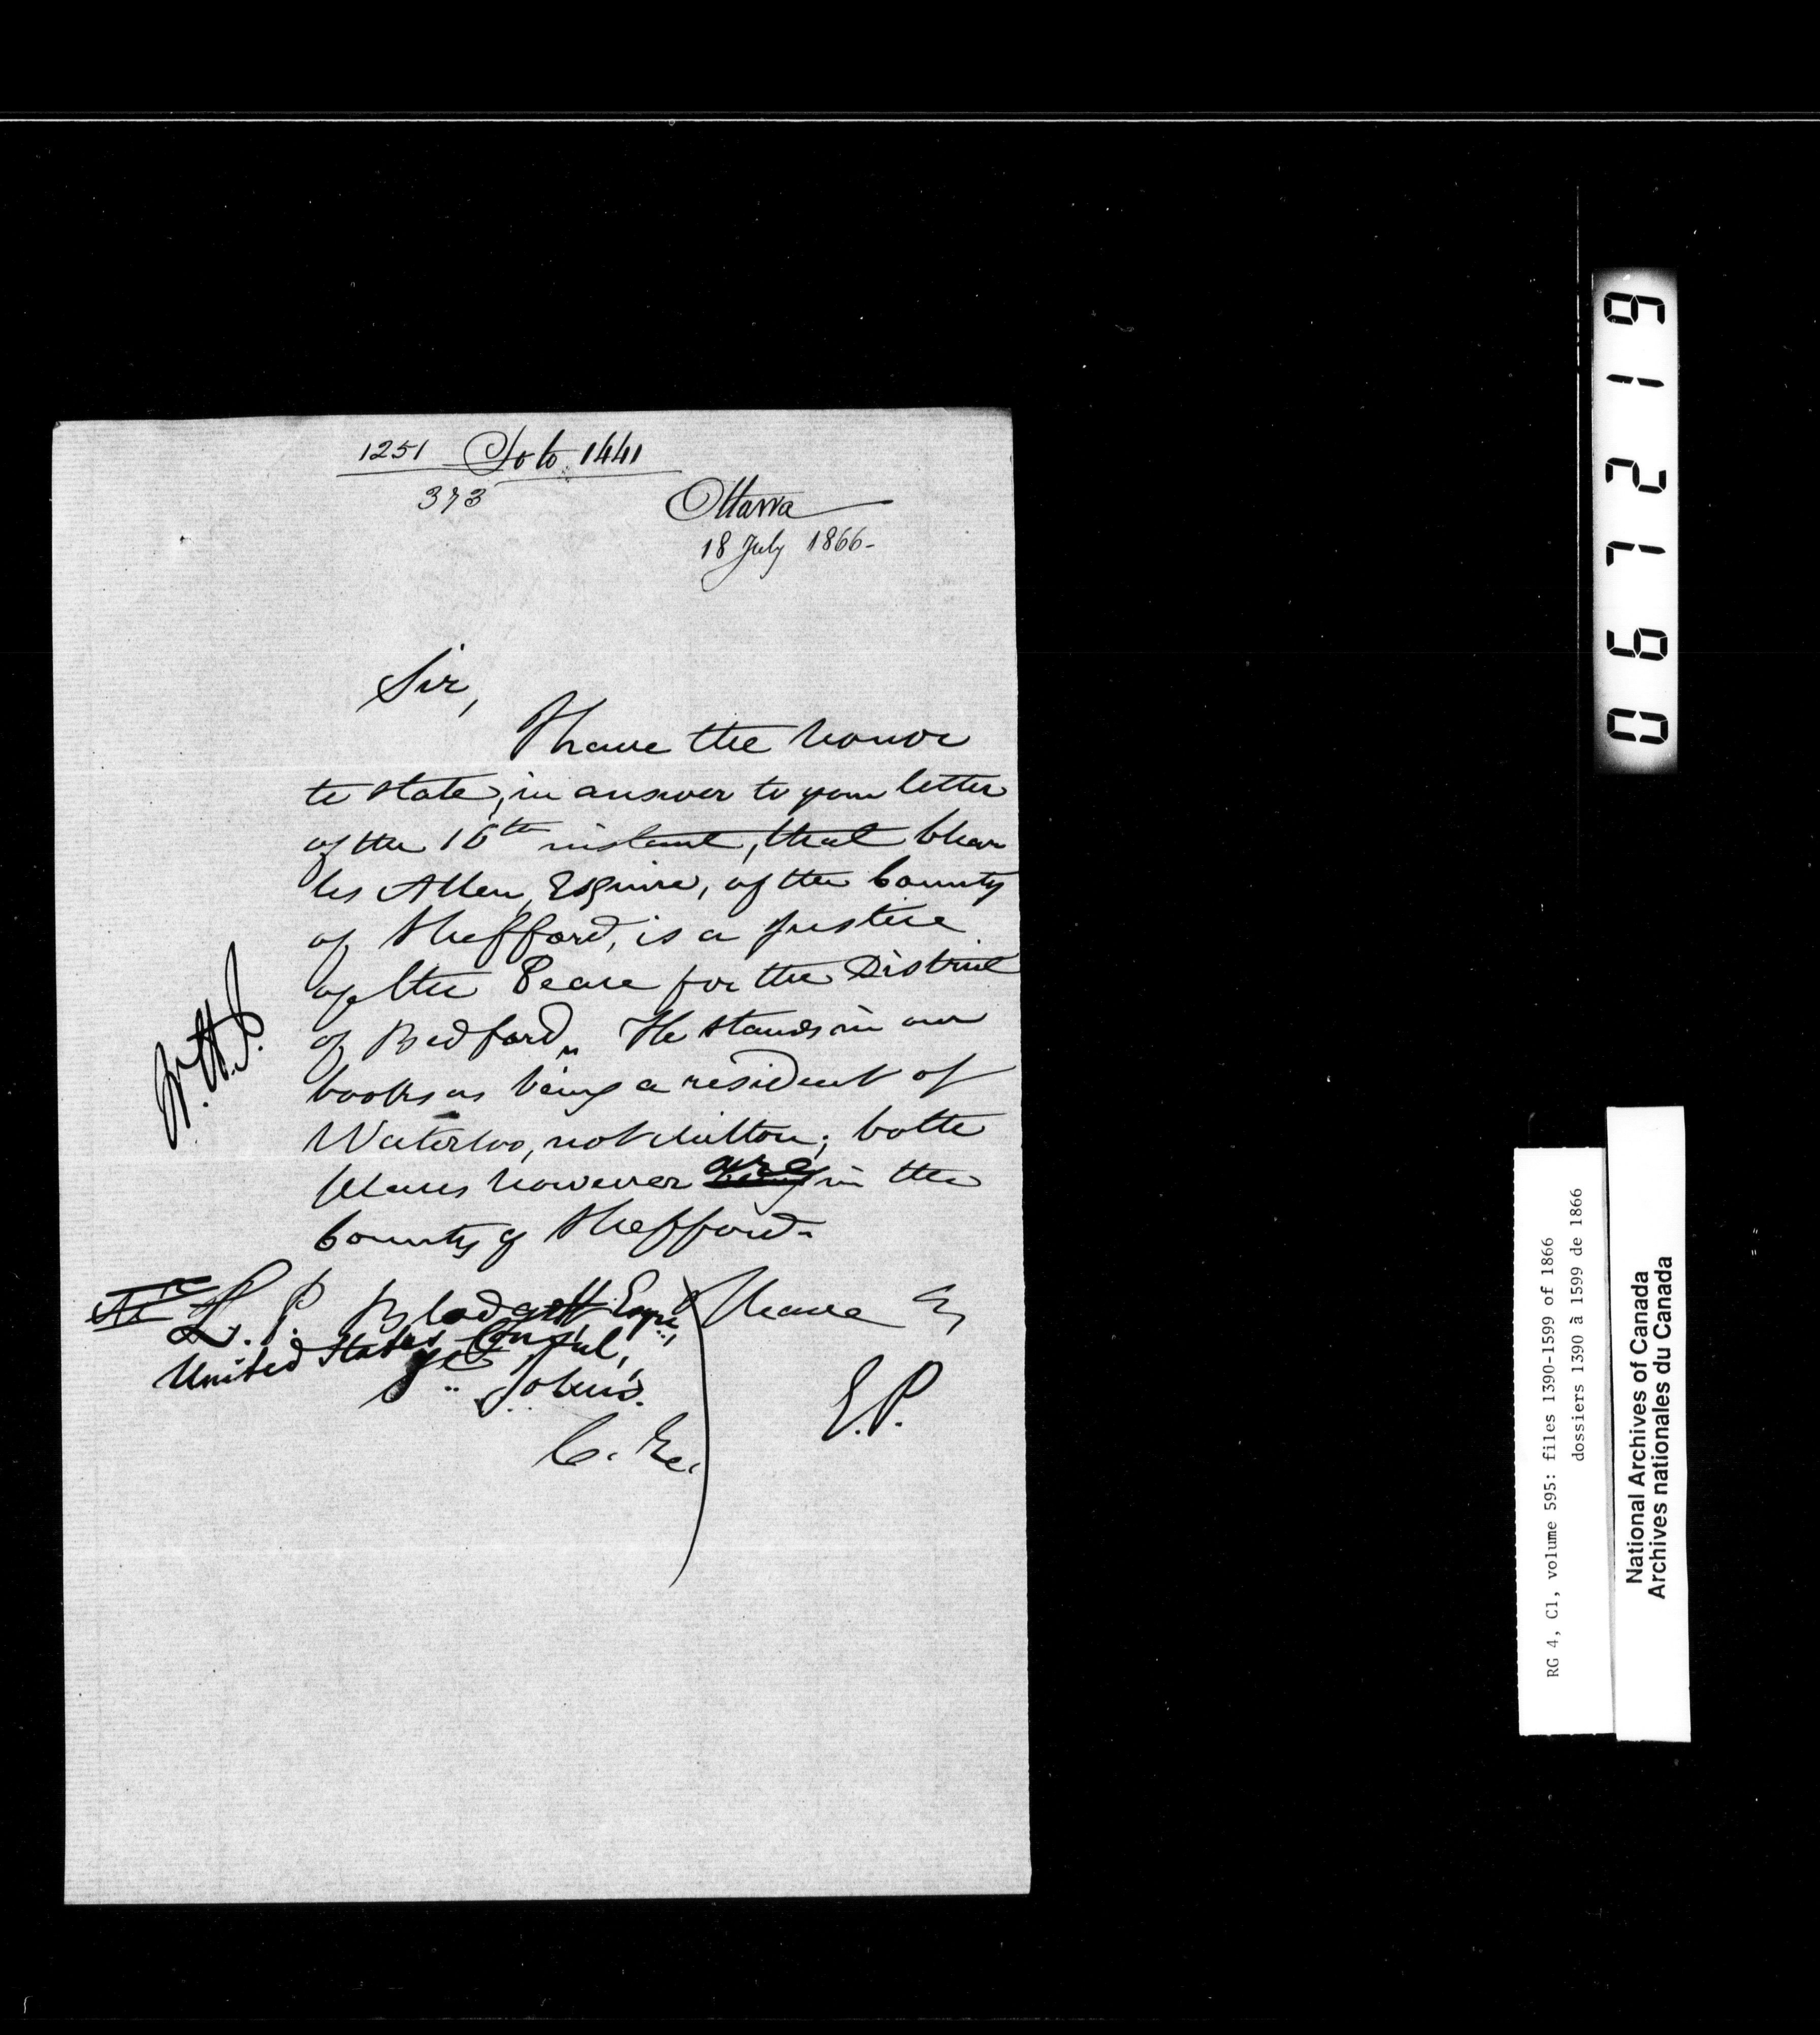 1251 So to 1441
373
Ottawa
18 July 1866-
Sir,
I have the honor
to state, in answer to your letter
of the 16th instant, that Char
les Allen, Esquire, of the County
of Shefford, is a Justice
of the Peace for the District
of Bedford. He stands in our
books as being a resident of
Waterloo, not Milton; both
places however are in the
County of Shefford.
W.H.J.
L. P. Blodgett Esqre,
United States Consul,
St. John's.
C. E.
I have &
E.P.
067219
RG 4, C1, volume 595: files 1390-1599 of 1866
dossiers 1390 à 1599 de 1866
National Archives of Canada
Archives nationales du Canada